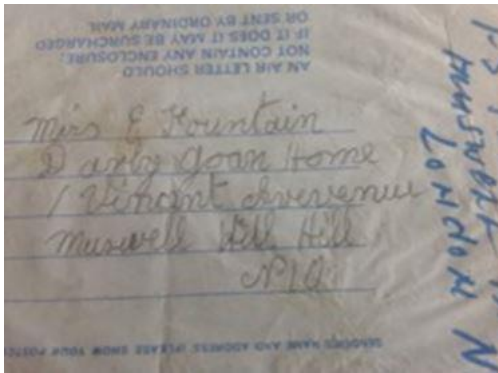 AN AIR LETTER SHOULD
NOT CONTAIN ANY ENCLOSURE;
IF IT DOES IT MAY BE SURCHARGED
OR SENT BY ORDINARY MAIL
Miss E Fountain
Home
1 Vincent
Muswell Hill Hill
N10
SENDER'S NAME AND ADDRESS (PLEASE SHOW YOUR POSTCODE
LONDON N